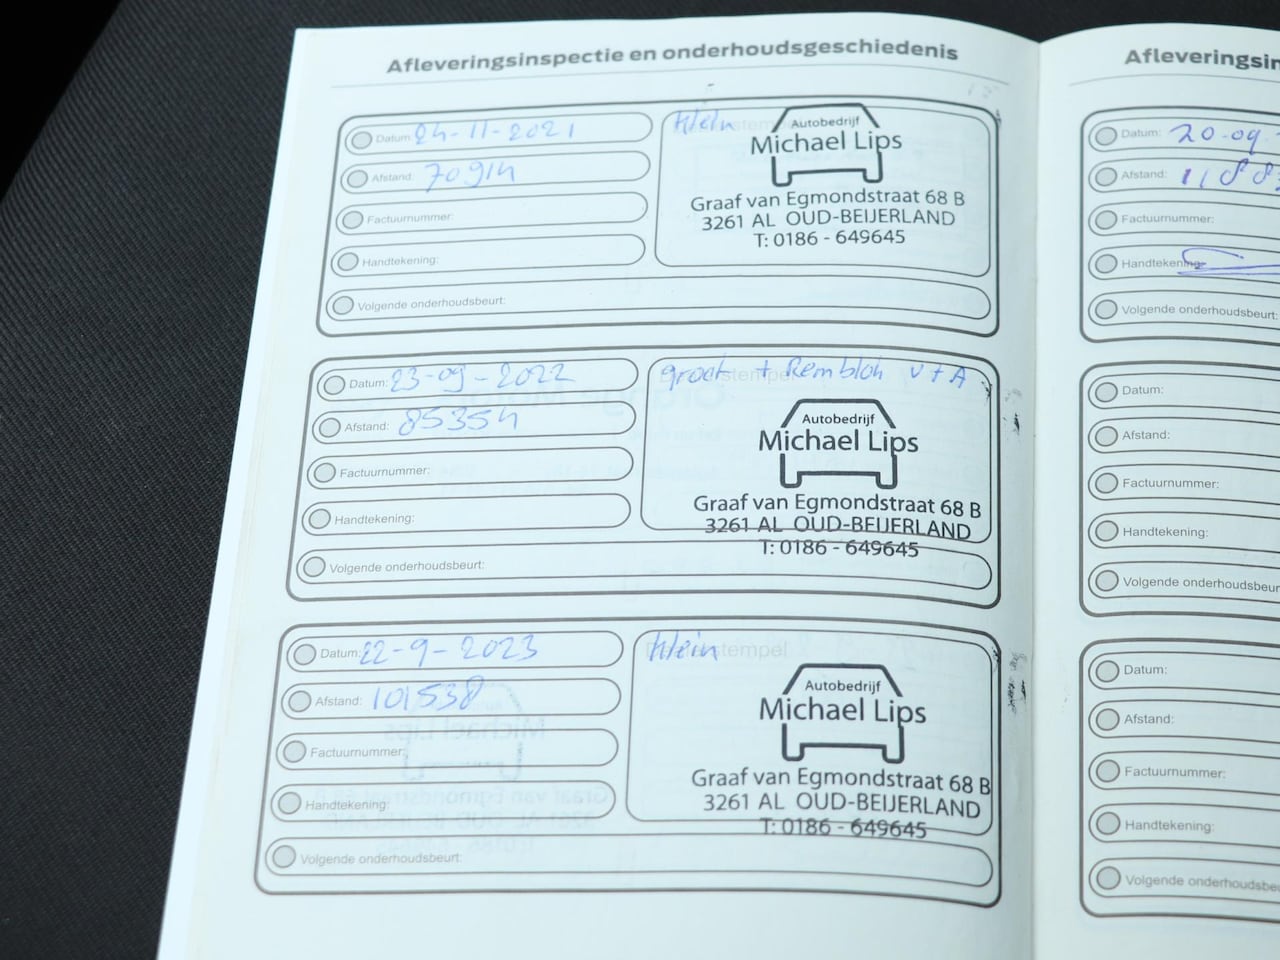 Afleveringsinspectie en onderhoudsgeschiedenis
Datum: 24-11-2021
Afstand: 70914
Factuurnummer:
Handtekening:
Volgende onderhoudsbeurt:
Klein
Autobedrijf
Michael Lips
Graaf van Egmondstraat 68 B
3261 AL OUD-BEIJERLAND
T: 0186 - 649645
Datum: 23-09-2022
Afstand: 85354
Factuurnummer:
Handtekening:
Volgende onderhoudsbeurt:
groot + Remblok V+A
Autobedrijf
Michael Lips
Graaf van Egmondstraat 68 B
3261 AL OUD-BEIJERLAND
T: 0186 - 649645
Datum: 22-9-2023
Afstand: 101538
Factuurnummer:
Handtekening:
Volgende onderhoudsbeurt:
Klein
Dealerstempel
Autobedrijf
Michael Lips
Graaf van Egmondstraat 68 B
3261 AL OUD-BEIJERLAND
T: 0186 - 649645
Afleveringsin
Datum: 20-09-
Afstand: 1188
Factuurnummer:
Handtekening:
Volgende onderhoudsbeurt:
Datum:
Afstand:
Factuurnummer:
Handtekening:
Volgende onderhoudsbeur
Datum:
Afstand:
Factuurnummer:
Handtekening:
Volgende onderhoudsbe